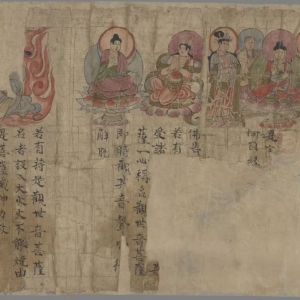 何因緣
佛告
若有
受諸
薩一心稱名觀世音菩薩
即時觀其音聲
解脫
若有持是觀世音菩薩
名者設入大火火不能燒由
是菩薩威神力故